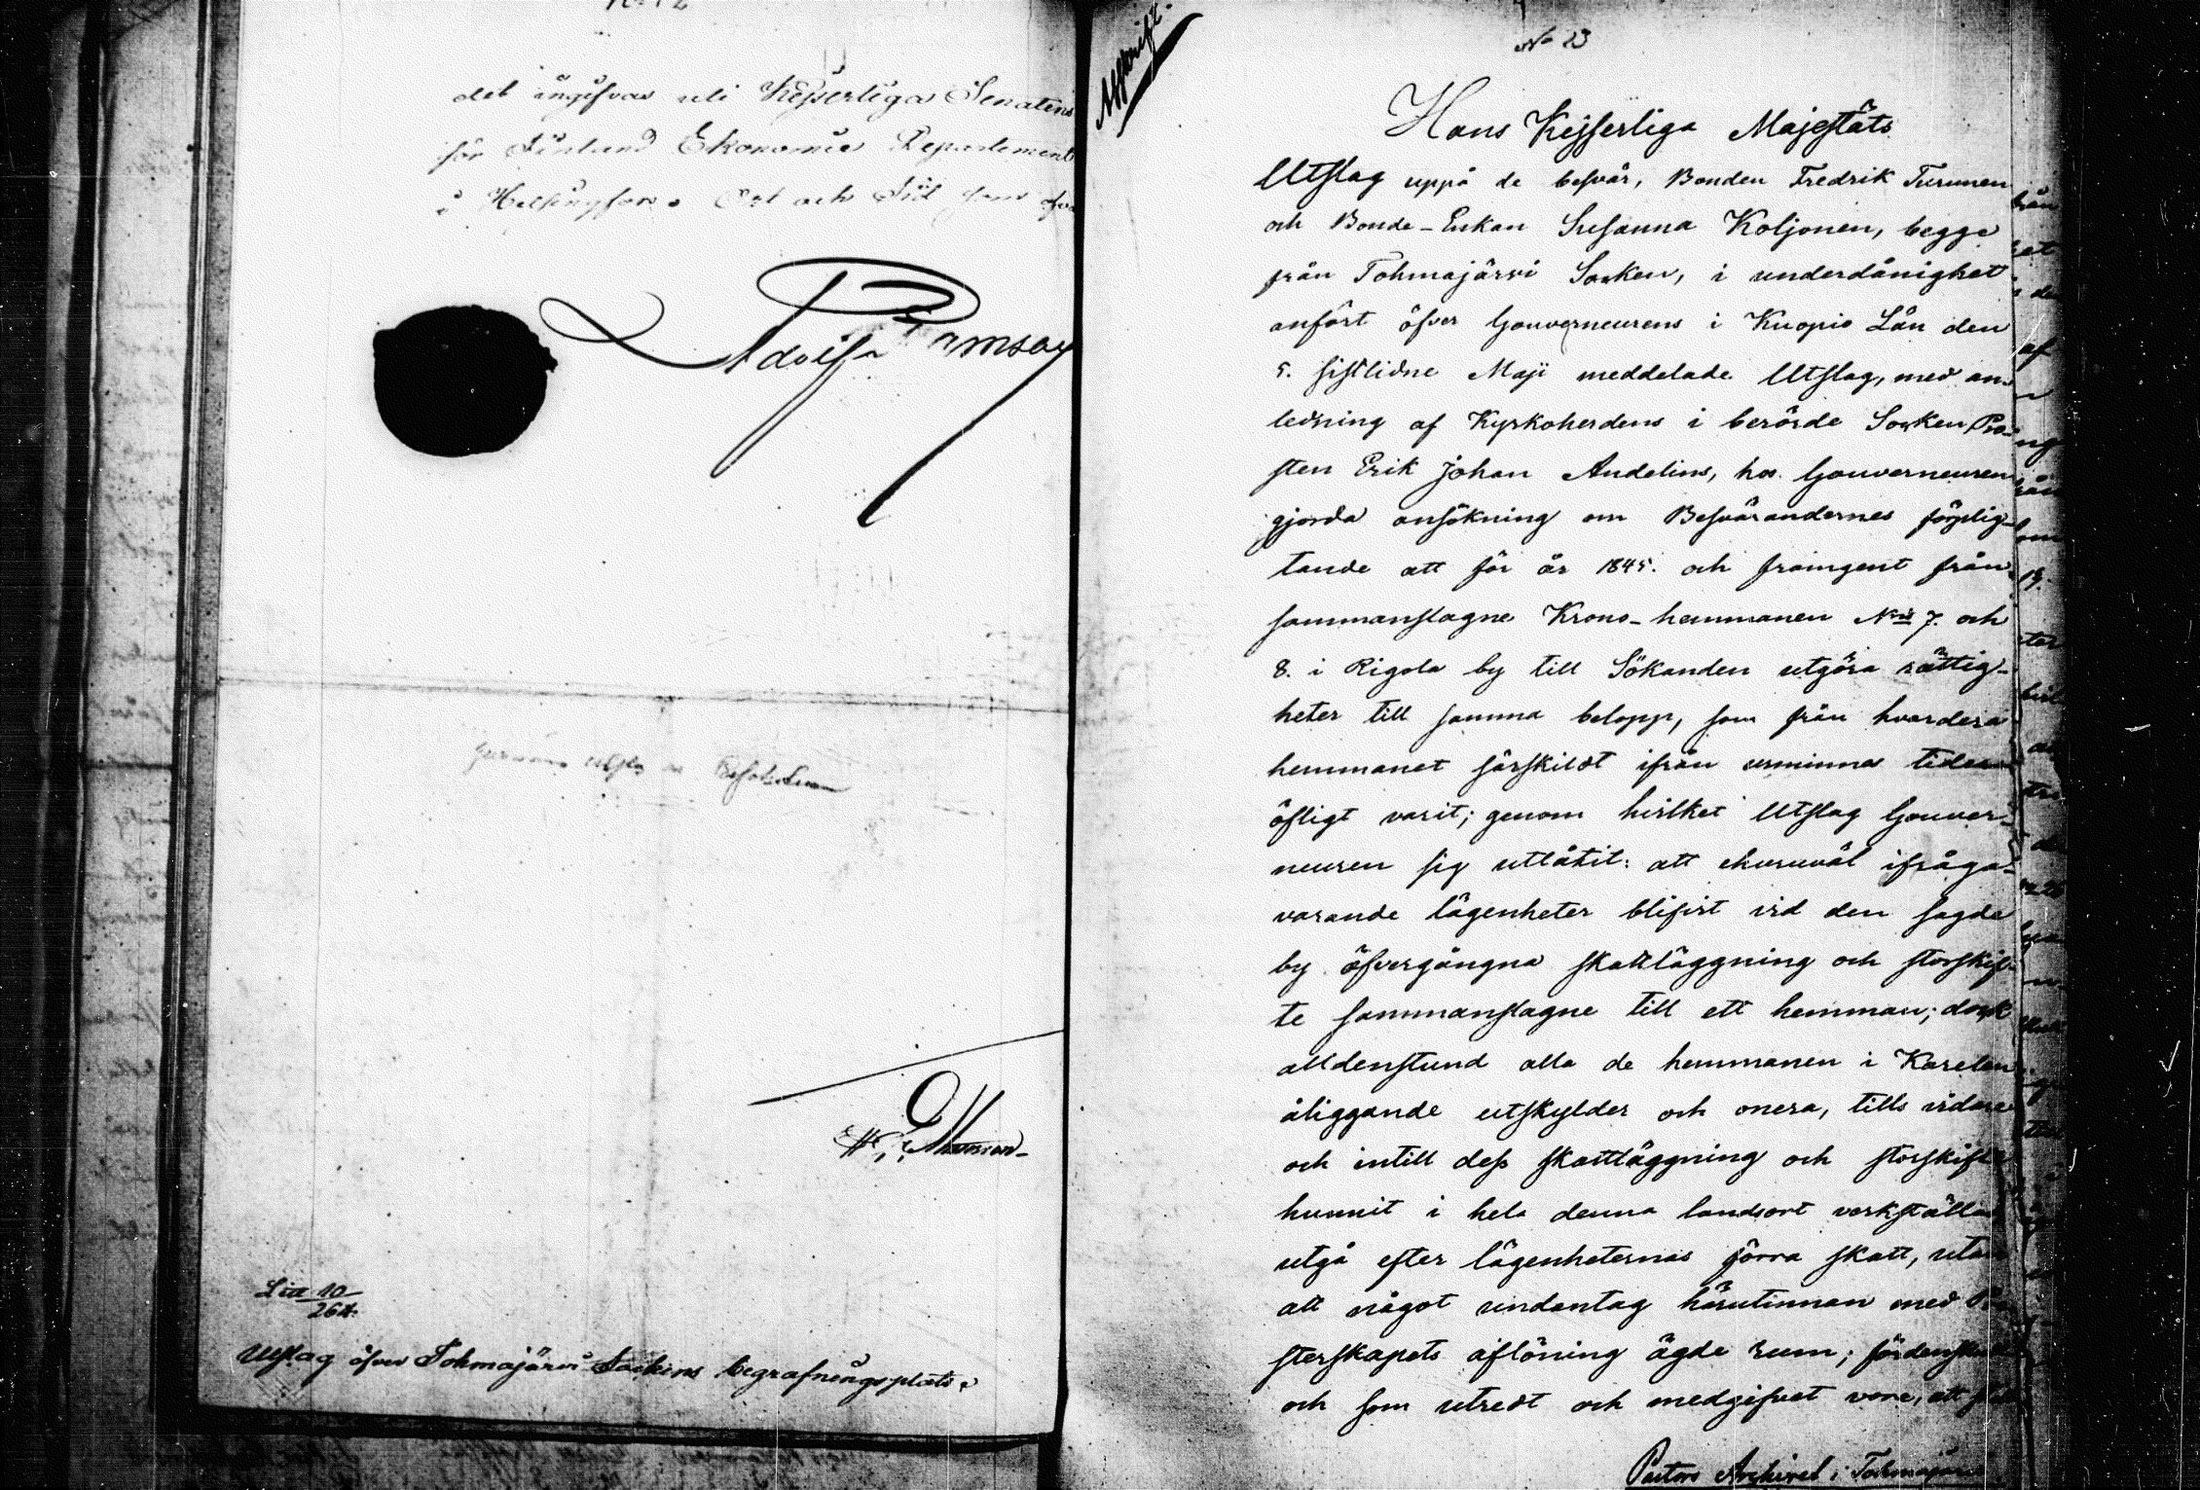 det ingifvas uti Kejserliga Senatens
för Finland Ekonomie Departement
i Helsingfors. Ort och Tid som ofvan
Adolf Ramsay
Lia 10
264.
Utslag öfver Tohmajärvi Sockens begrafningsplats.
Afskrift.
No 23
Hans Kejserliga Majestäts
Utslag uppå de besvär, Bonden Fredrik Turunen
och Bonde-Enkan Susanna Koljonen, begge
från Tohmajärvi Socken, i underdånighet
anfört öfver Gouverneurens i Kuopio Län den
5. sistlidne Maji meddelade Utslag, med an-
ledning af Kyrkoherdens i berörde Socken Pro-
sten Erik Johan Andelins, hos Gouverneuren
gjorda ansökning om Besvärandernes förplig-
tande att för år 1845. och framgent från
sammanslagne Krono-hemmanen Nris 7. och
8. i Rigola by till Sökanden utgöra rättig-
heter till samma belopp, som från hvardera
hemmanet särskildt ifrån urminnes tider
öfligt varit; genom hvilket Utslag Gouver-
neuren sig utlåtit: att ehuruväl ifråga-
varande lägenheter blifvit vid den sagde
by öfvergångna skattläggning och storskif-
te sammanslagne till ett hemman; dock
alldenstund alla de hemmanen i Karelen
åliggande utskylder och onera, tills vidare
och intill dess skattläggning och storskifte
hunnit i hela denna landsort verkställas
utgå efter lägenheternas förra skatt, utan
att något undantag härutinnan med Pre-
sterskapets aflöning ägde rum; fördenskull
och som utredt och medgifvet vore, att
Pastors Archivet i Tohmajärvi